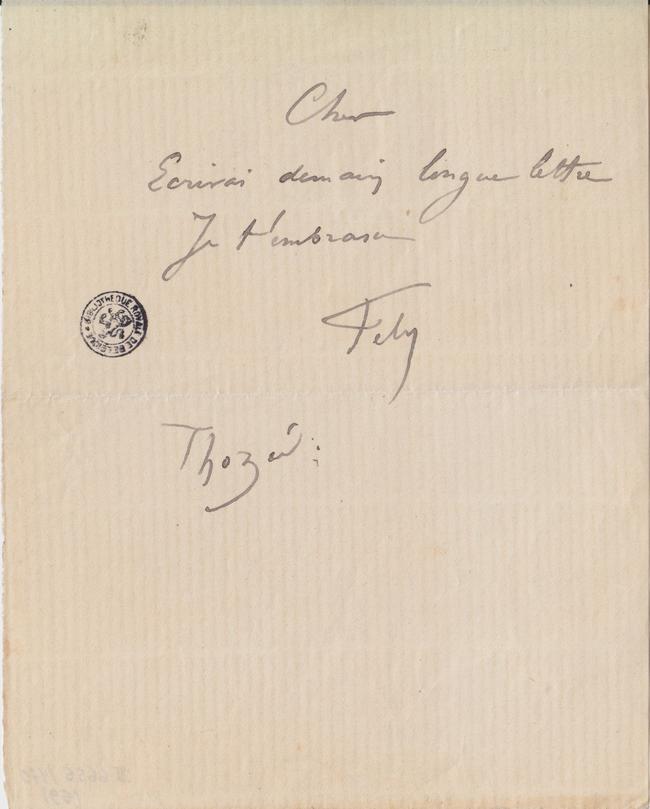 Cher
Ecrirai demain longue lettre
Je t'embrasse
Fely
Thozée
BIBLIOTHEQUE ROYALE DE BELGIQUE